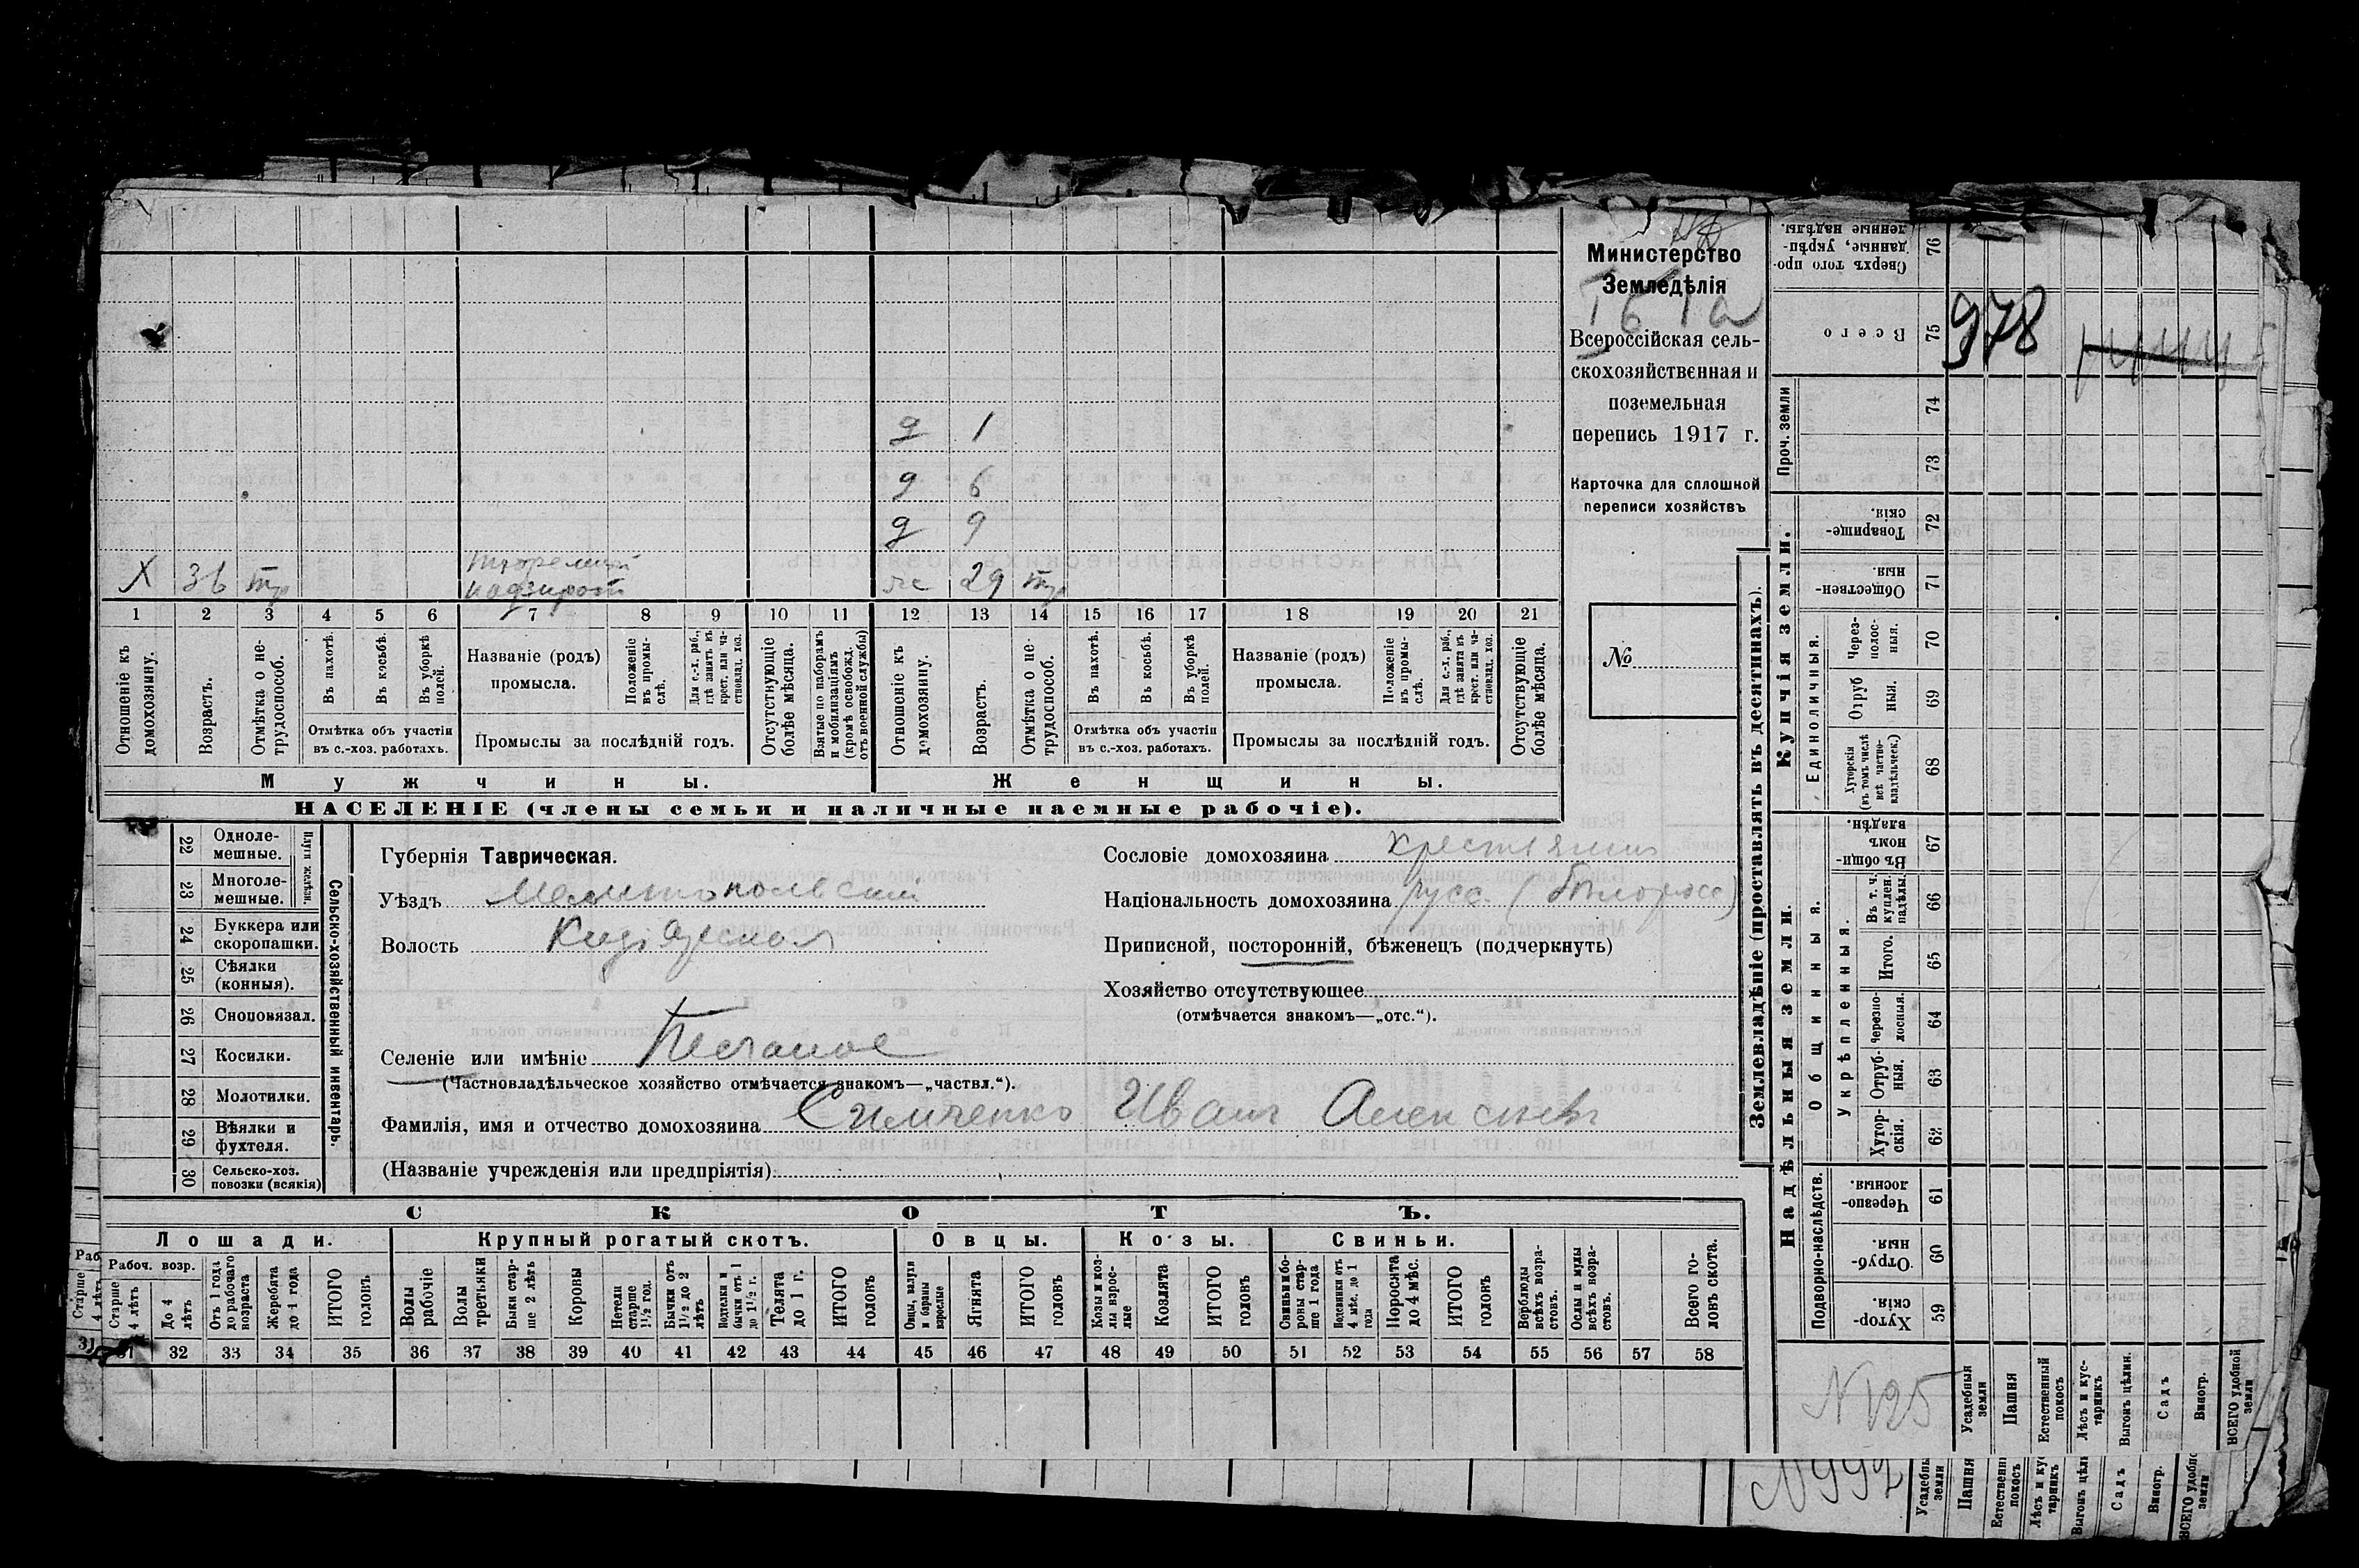 Министерство
Земледѣлія
161а
Всероссійская сель-
скохозяйственная и
поземельная
перепись 1917 г.
Карточка для сплошной
переписи хозяйствъ
№
д 1
д 6
д 9
Х 36 тр тюремный надзират ж 29 тр
1 2 3 4 5 6 7 8 9 10 11 12 13 14 15 16 17 18 19 20 21
Отношеніе къ домохозяину.
Возрастъ.
Отмѣтка о не-трудоспособ.
Въ пахотѣ.
Въ косьбѣ.
Въ уборкѣ полей.
Отмѣтка объ участіи
въ с.-хоз. работахъ.
Названіе (родъ)
промысла.
Положеніе въ промы-слѣ.
Для с.-х. раб., гдѣ занятъ въ крест. или ча-ствовлад. хоз.
Промыслы за послѣдній годъ.
Отсутствующіе болѣе мѣсяца.
Взятые по наборамъ и мобилизаціямъ (кромѣ освобожд. отъ военной службы)
Отношеніе къ домохозяину.
Возрастъ.
Отмѣтка о не-трудоспособ.
Въ пахотѣ.
Въ косьбѣ.
Въ уборкѣ полей.
Отмѣтка объ участіи
въ с.-хоз. работахъ.
Названіе (родъ)
промысла.
Положеніе въ промы-слѣ.
Для с.-х. раб., гдѣ занята въ крест. или ча-ствовлад. хоз.
Промыслы за послѣдній годъ.
Отсутствующіе болѣе мѣсяца.
Мужчины.
Женщины.
НАСЕЛЕНІЕ (члены семьи и наличные наемные рабочіе).
22 Одноле-мешные.
23 Многоле-мешные.
Плуги желѣзн.
24 Буккера или скоропашки.
25 Сѣялки (конныя).
26 Сноповязал.
27 Косилки.
28 Молотилки.
29 Вѣялки и фухтеля.
30 Сельско-хоз. повозки (всякія)
Сельско-хозяйственный инвентарь.
Губернія Таврическая.
Уѣздъ Мелитопольскій
Волость Кизіярская
Селеніе или имѣніе Песчаное
(Частновладѣльческое хозяйство отмѣчается знакомъ—„частвл.“).
Фамилія, имя и отчество домохозяина Симченко Иванъ Алексѣевъ
(Названіе учрежденія или предпріятія)
Сословіе домохозяина крестьянин
Національность домохозяина русс. (білоросс)
Приписной, посторонній, бѣженецъ (подчеркнуть)
Хозяйство отсутствующее
(отмѣчается знакомъ—„отс.“).
СКОТЪ.
Лошади.
Крупный рогатый скотъ.
Овцы.
Козы.
Свиньи.
Рабоч. возр.
Старше 4 лѣтъ
До 4 лѣтъ
Отъ 1 года до рабочаго возраста
Жеребята до 1 года
ИТОГО головъ
Волы рабочіе
Волы третьяки
Быки стар-ше 2 лѣтъ
Коровы
Нетели старше 1½ год.
Бычки отъ 1½ до 2 лѣтъ
Подтелки и бычки отъ 1 до 1½ г.
Телята до 1 г.
ИТОГО головъ
Овцы, валухи и бараны взрослые
Ягнята
ИТОГО головъ
Козы и коз-лы взрос-лые
Козлята
ИТОГО головъ
Свиньи и бо-ровы стар-ше 1 года
Подсвинки отъ 4 мѣс. до 1 года
Поросята до 4 мѣс.
ИТОГО головъ
Верблюды всѣхъ возра-стовъ.
Ослы и мулы всѣхъ возра-стовъ.
Всего го-ловъ скота.
31 32 33 34 35 36 37 38 39 40 41 42 43 44 45 46 47 48 49 50 51 52 53 54 55 56 57 58
Землевладѣніе (проставлять въ десятинахъ).
Купчія земли.
Надѣльныя земли.
Сверхъ того про-данные, укрѣп-ленные надѣлы. 76
Всего 75
978
Проч. земли
74
73
Товарище-скія. 72
Обществен-ныя. 71
Единоличныя.
Через-полос-ныя. 70
Отрубныя. 69
Хуторскія (въ томъ числѣ всѣ частно-владѣльческ.) 68
Въ общи-номъ владѣн. 67
Общинныя.
Укрѣпленныя.
Въ т. ч. куплен. надѣлы. 66
Итого. 65
Черезпо-лосныя. 64
Отруб-ныя. 63
Хутор-скія. 62
Подворно-наслѣдств.
Черезпо-лосныя. 61
Отруб-ныя. 60
Хутор-скія. 59
N 125
Усадебныя земли
Пашня
Естественный покосъ
Лѣсъ и кус-тарникъ
Выгонъ цѣлин.
Садъ
Виногр.
ВСЕГО удобной земли
N 992